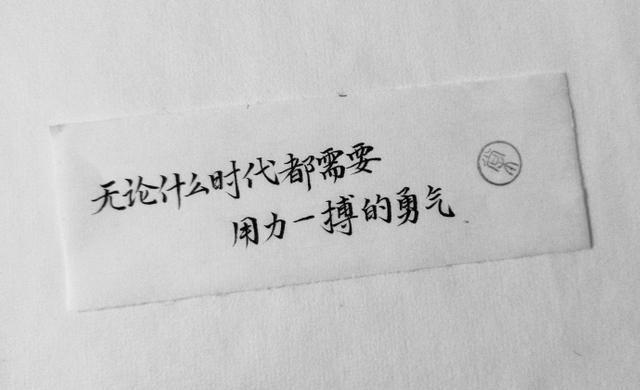 无论什么时代都需要
用力一搏的勇气